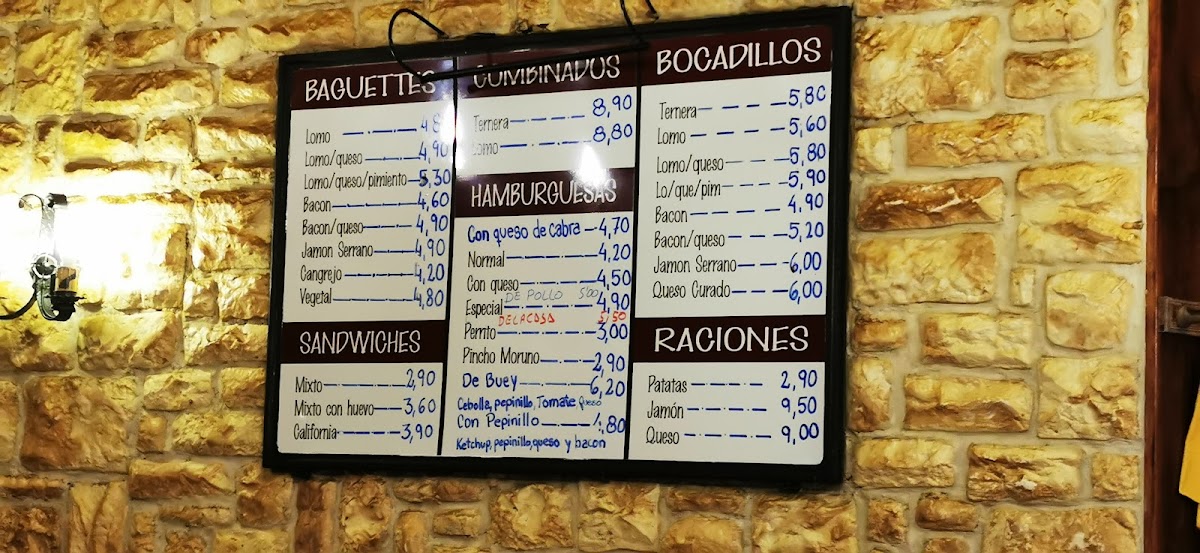 BAGUETTES
Lomo 4,8
Lomo/queso 4,90
Lomo/queso/pimiento 5,30
Bacon 4,60
Bacon/queso 4,90
Jamon Serrano 4,90
Cangrejo 4,20
Vegetal 4,80
SANDWICHES
Mixto 2,90
Mixto con huevo 3,60
California 3,90
COMBINADOS
Ternera 8,90
Lomo 8,80
HAMBURGUESAS
Con queso de cabra 4,70
Normal 4,20
Con queso 4,50
DE POLLO 5'00
Especial 4,90
DE LA CASA 5,50
Perrito 3,00
Pincho Moruno 2,90
De Buey 6,20
Cebolla, pepinillo, Tomate, queso
Con Pepinillo 4,80
Ketchup, pepinillo, queso y bacon
BOCADILLOS
Ternera 5,80
Lomo 5,60
Lomo/queso 5,80
Lo/que/pim 5,90
Bacon 4,90
Bacon/queso 5,20
Jamon Serrano 6,00
Queso Curado 6,00
RACIONES
Patatas 2,90
Jamón 9,50
Queso 9,00